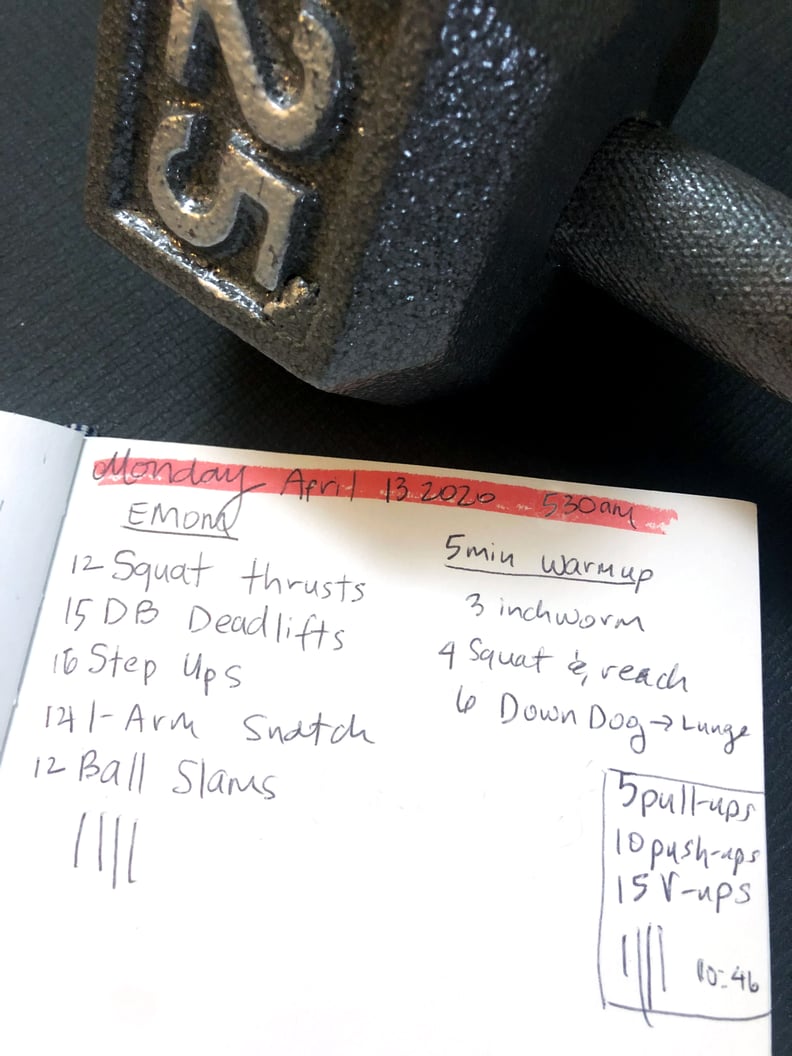 25
Monday April 13 2020 530am
EMOM
12 Squat thrusts
15 DB Deadlifts
16 Step Ups
14 1-Arm Snatch
12 Ball Slams
||||
5min warmup
3 inchworm
4 Squat & reach
6 Down Dog → Lunge
5 pull-ups
10 push-ups
15 V-ups
|||| 10:46